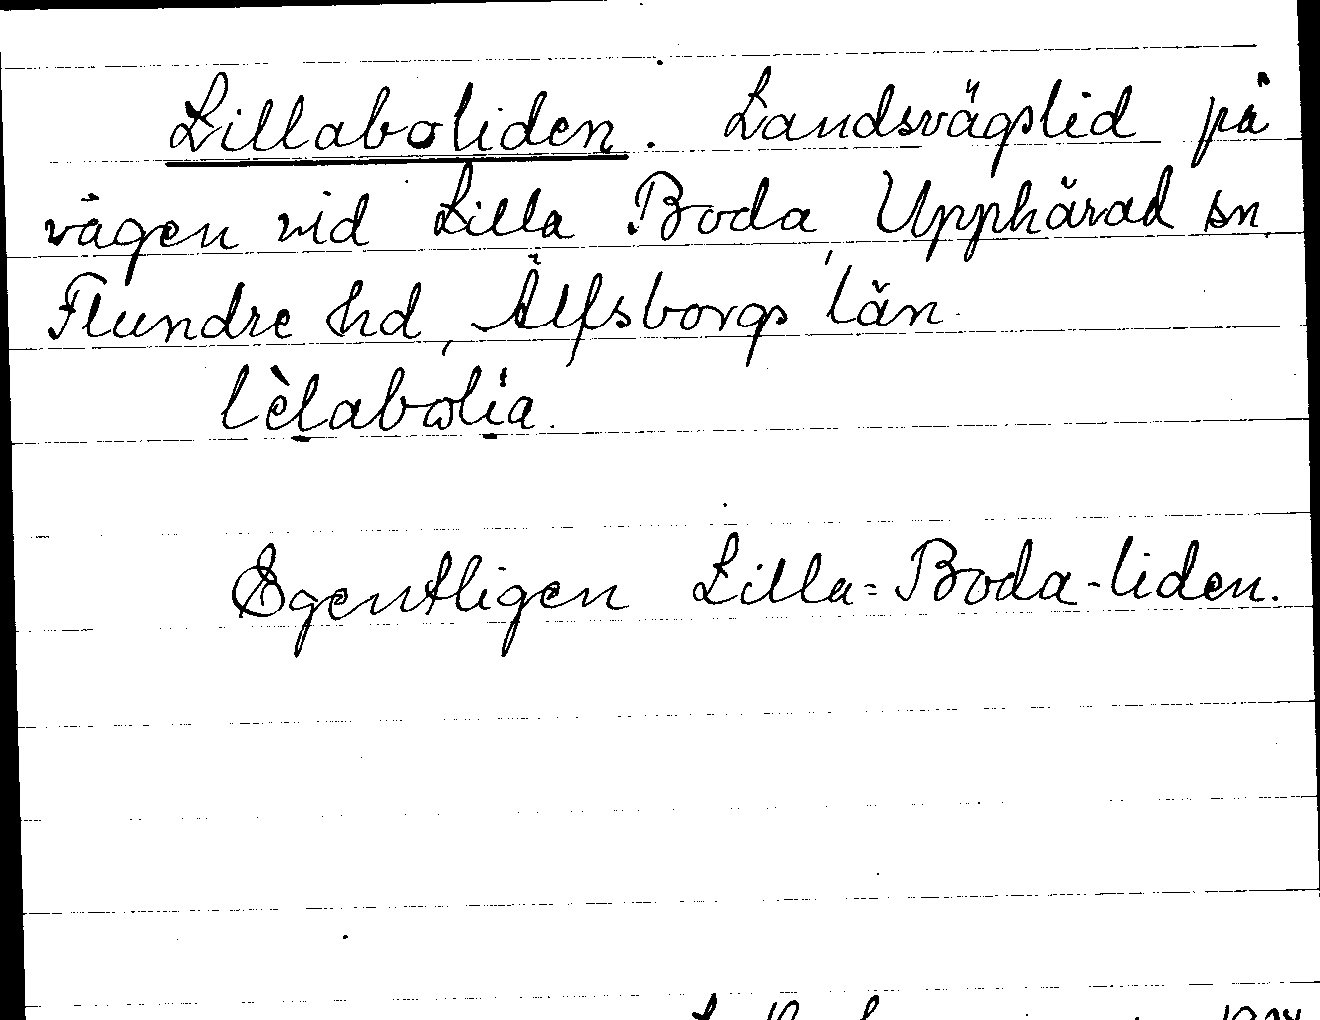 Lillaboliden. Landsvägslid på
vägen vid Lilla Boda, Upphärad sn.
Flundre hd, Älfsborgs län.
lèlabolia.
Egentligen Lilla-Boda-liden.